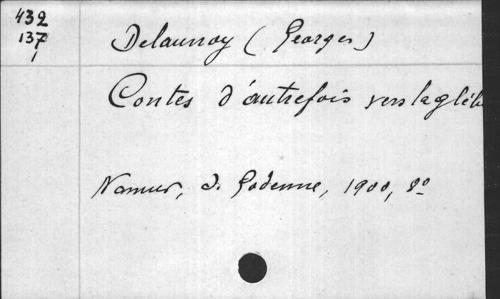 432
137
1
Delaunoy (Georges)
Contes d'autrefois vers la glèbe
Namur, J. Godenne, 1900, 8º